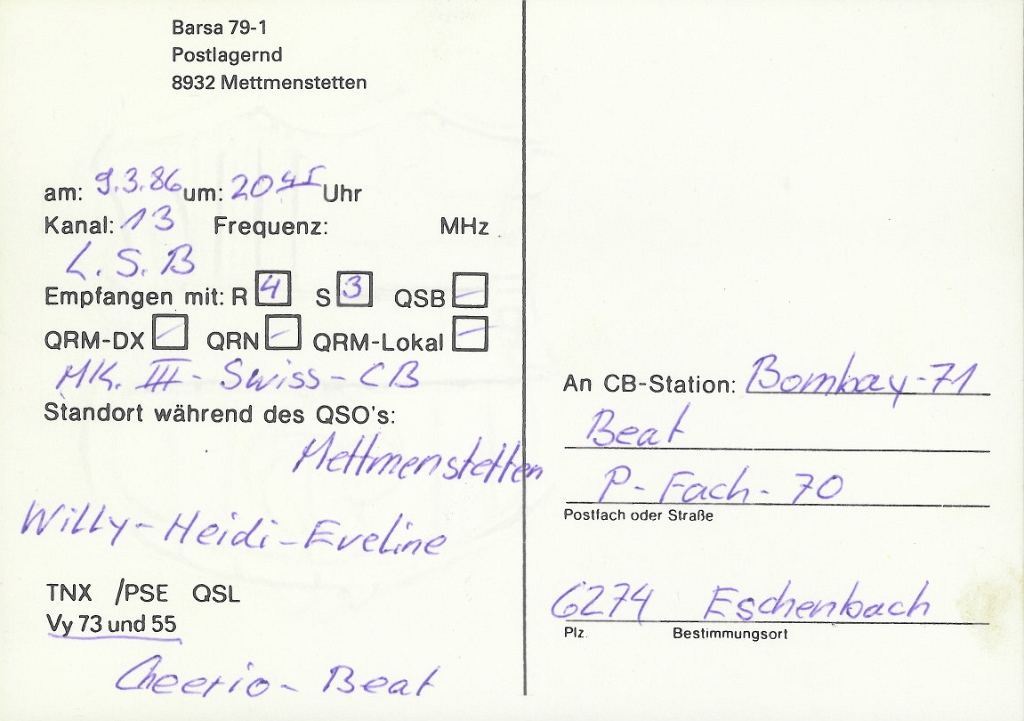 Barsa 79-1
Postlagernd
8932 Mettmenstetten
am: 9.3.86 um: 20 45 Uhr
Kanal: 13 Frequenz: MHz
L.S.B
Empfangen mit: R 4 S 3 QSB –
QRM-DX – QRN – QRM-Lokal –
MK. III - Swiss - CB
Standort während des QSO's:
Mettmenstetten
Willy - Heidi - Eveline
TNX /PSE QSL
Vy 73 und 55
Cheerio - Beat
An CB-Station: Bombay-71
Beat
P-Fach-70
Postfach oder Straße
6274 Eschenbach
Plz. Bestimmungsort